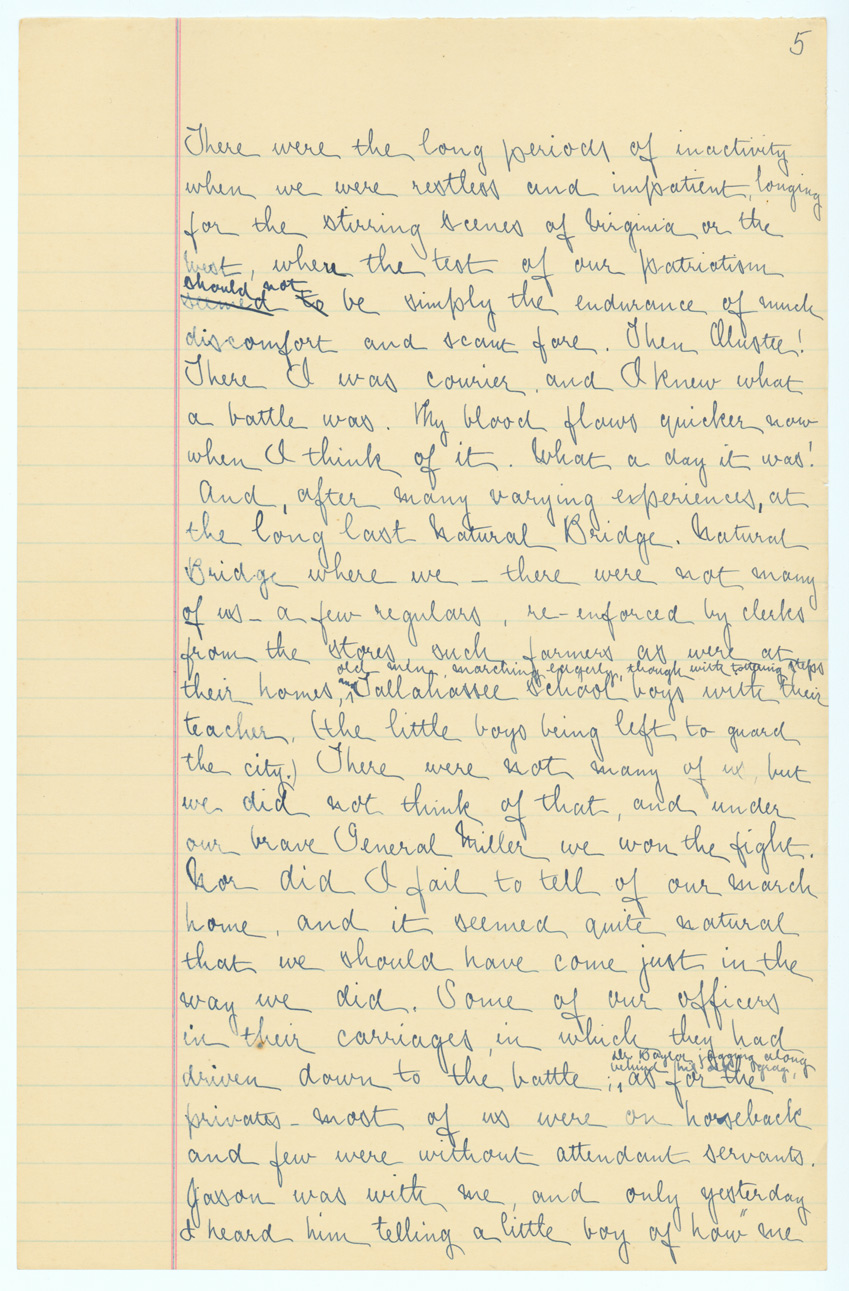 5
There were the long periods of inactivity
when we were restless and impatient, longing
for the stirring scenes of Virginia or the
West, where the test of our patriotism
should not
seemed to be simply the endurance of much
discomfort and scant fare. Then Olustee!
There I was courier, and I knew what
a battle was. My blood flows quicker now
when I think of it. What a day it was!
And, after many varying experiences, at
the long last Natural Bridge. Natural
Bridge where we – there were not many
of us – a few regulars, re-enforced by clerks
from the stores, such farmers as were at
old men, marching eagerly, though with steps
their homes, and Tallahassee school boys with their
teacher, (the little boys being left to guard
the city.) There were not many of us, but
we did not think of that, and under
our brave General Miller we won the fight.
Nor did I fail to tell of our march
home, and it seemed quite natural
that we should have come just in the
way we did. Some of our officers
in their carriages, in which they had
Dr Baylor jogging along
behind his old gray,
driven down to the battle; as for the
privates – most of us were on horseback
and few were without attendant servants.
Jason was with me, and only yesterday
I heard him telling a little boy of how "me